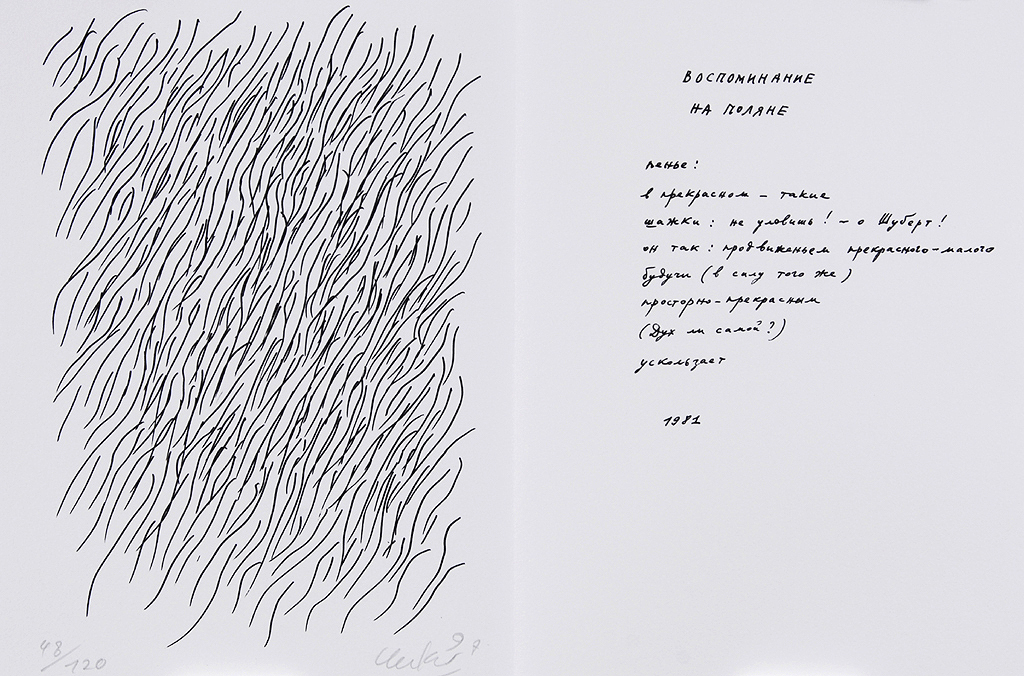 ВОСПОМИНАНИЕ
НА ПОЛЯНЕ
пенье:
в прекрасном – такие
шажки: не уловишь! – о Шуберт!
он так: продвиженьем прекрасного-малого
будучи (в силу того же)
просторно-прекрасным
(Дух ли самой?)
ускользает
1981
48/120
97